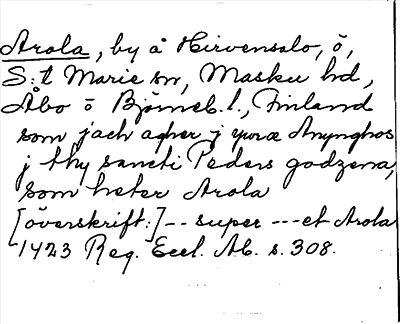 Arola, by å Hirvensalo, ö,
S:t Marie sn, Masku hd,
Åbo o Björneb. l., Finland
som jach agher j yoræ Anynghos
j thy sancti Peders godzena,
som heter Arola
[överskrift:] -- super --- et Arola
1423 Reg. Eccl. Ab. s. 308.